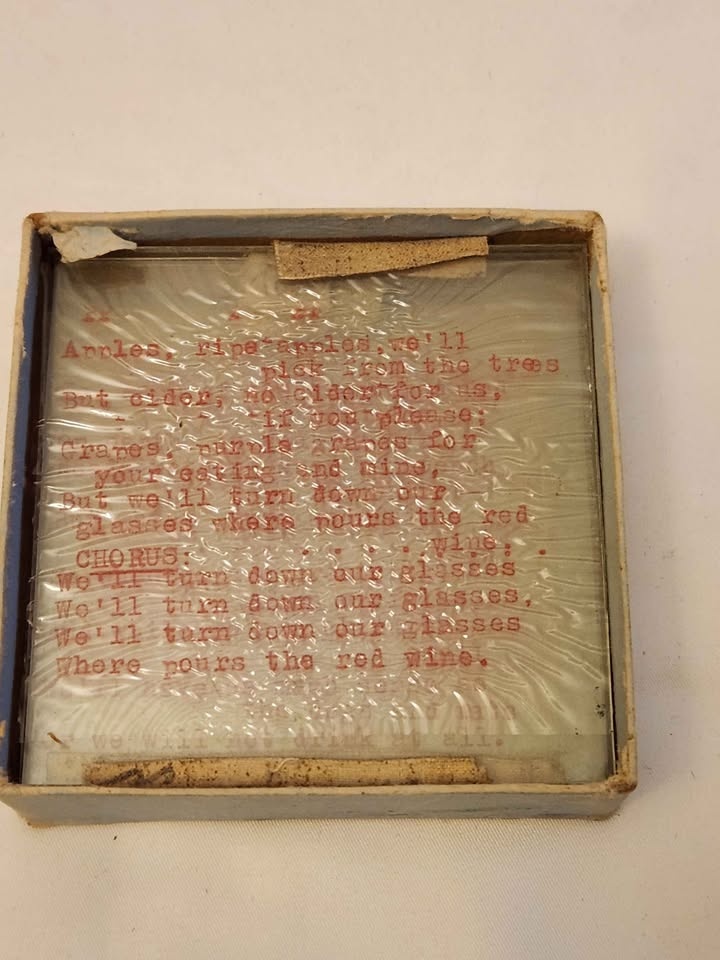 Apples, ripe apples, we'll
pick from the trees
But cider, no cider for us,
if you please;
Grapes, purple grapes for
your eating and mine,
But we'll turn down our
glasses where pours the red
wine.
CHORUS:
We'll turn down our glasses
We'll turn down our glasses,
We'll turn down our glasses
Where pours the red wine.
we will not drink